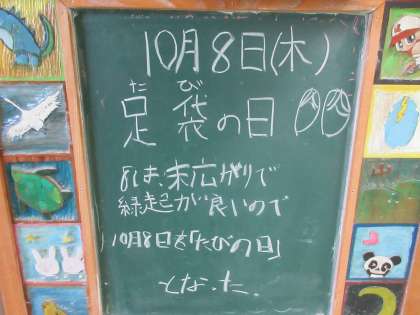 10月8日(木)
たび
足袋の日
8は、末広がりで
縁起が良いので
10月8日を「たびの日」
となった.